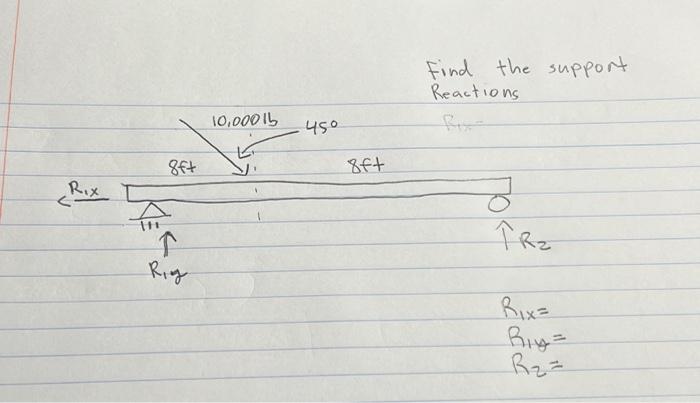 Find the support
Reactions
R1x=
10,000lb
45°
8ft
8ft
R1x
R1y
R2
R1x=
R1y=
R2=